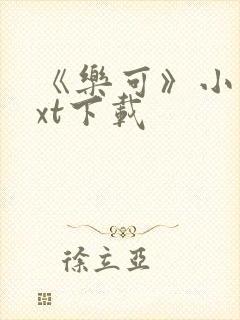 《樂可》小
xt下載
徐立亞